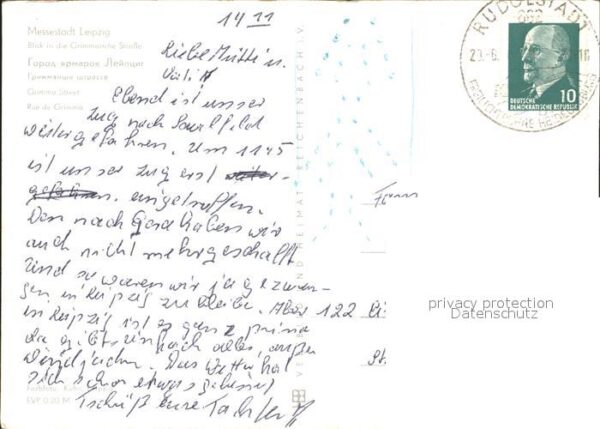 14 11
Messestadt Leipzig
Blick in die Grimmaische Straße
Город ярмарок Лейпциг
Гриммаише штрассе
Grimma Street
Rue de Grimma
Liebe Mutti u.
Vati!
Ebend ist unser
Zug nach Saalfeld
weitergefahren. Um 1145
ist unser Zug erst
eingetroffen.
Den nach Gera haben wir
auch nicht mehr geschafft
und so waren wir ja gezwun-
gen, in Leipzig zu bleibe. Aber
in Leipzig ist es ganz prima
da gibt's einfach alles, außer
Windjacken. Das Wetter hat
sich schon etwas gebessert
Tschüß eure
EVP 0,20 M
VERLAG BILD UND HEIMAT REICHENBACH I. V.
RUDOLSTADT
DEUTSCHE
DEMOKRATISCHE REPUBLIK
10
122
privacy protection
Datenschutz